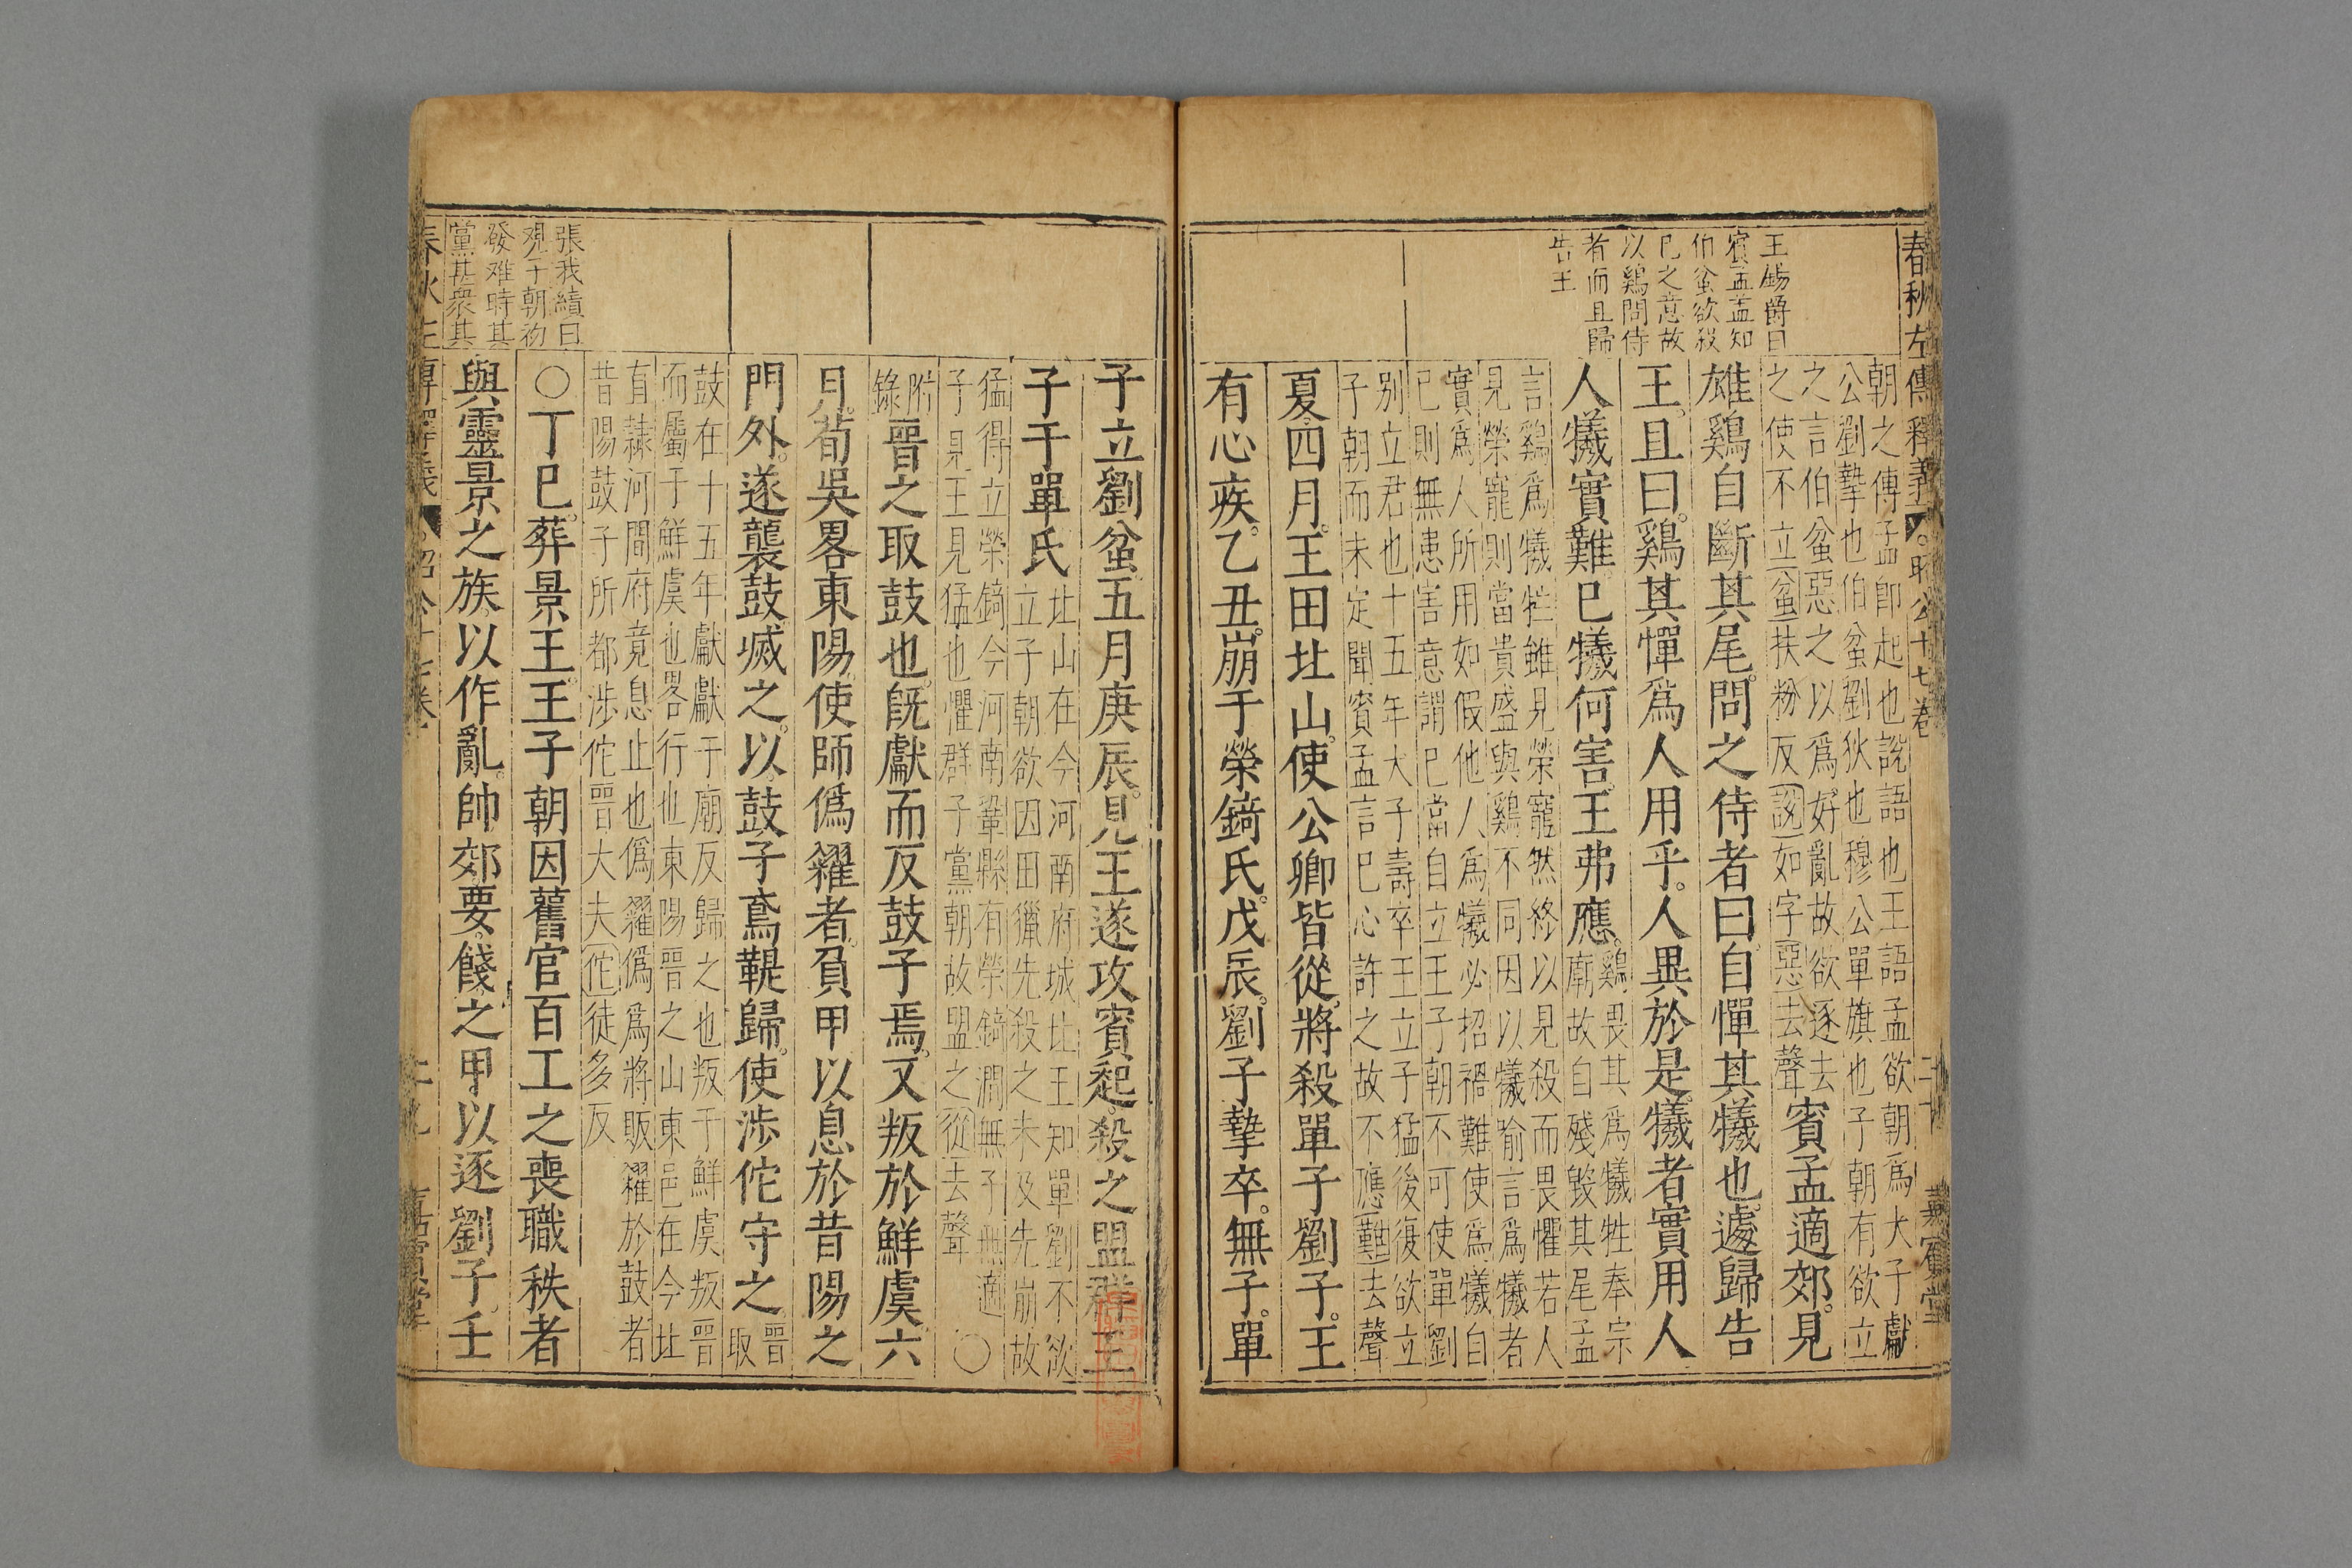 春秋左傳釋義
昭公十七卷
二十
嘉賓堂
王錫爵曰
賓孟蓋知
伯蚠欲殺
已之意故
以鷄問侍
者而且歸
告王
朝之傅孟即起也說語也王語孟欲朝爲大子獻
公劉摯也伯蚠劉狄也穆公單旗也子朝有欲立
之言伯蚠惡之以爲好亂故欲逐去
之使不立蚠扶粉反說如字惡去聲
賓孟適郊見
雄鷄自斷其尾問之侍者曰自憚其犧也遽歸告
王且曰鷄其憚爲人用乎人異於是犧者實用人
人犧實難已犧何害王弗應
鷄畏其爲犧牲奉宗
廟故自殘毀其尾孟
言鷄爲犧牲雖見榮寵然終以見殺而畏懼若人
見榮寵則當貴盛與鷄不同因以犧喻言爲犧者
實爲人所用如假他人爲犧必招禍難使爲犧自
已則無患害意謂已當自立王子朝不可使單劉
別立君也十五年大子壽卒王立子猛後復欲立
子朝而未定聞賓孟言已心許之故不應難去聲
夏四月王田北山使公卿皆從將殺單子劉子王
有心疾乙丑崩于榮錡氏戊辰劉子摯卒無子單
子立劉蚠五月庚辰見王遂攻賓起殺之盟羣王
子于單氏
北山在今河南府城北王知單劉不欲
立子朝欲因田獵先殺之未及先崩故
猛得立榮錡今河南鞏縣有榮錡澗無子無適
子見王見猛也懼群子黨朝故盟之從去聲
○
附
錄
晉之取鼓也既獻而反鼓子焉又叛於鮮虞六
月荀吳畧東陽使師僞糴者負甲以息於昔陽之
門外遂襲鼓滅之以鼓子鳶鞮歸使涉佗守之
晉
取
鼓在十五年獻獻于廟反歸之也叛于鮮虞叛晉
而屬于鮮虞也畧行也東陽晉之山東邑在今北
直隸河間府竟息止也僞糴僞爲將販糴於鼓者
昔陽鼓子所都涉佗晉大夫佗徒多反
○丁巳葬景王王子朝因舊官百工之喪職秩者
張我續曰
觀子朝初
發难時其
黨甚衆其
與靈景之族以作亂帥郊要餞之甲以逐劉子壬